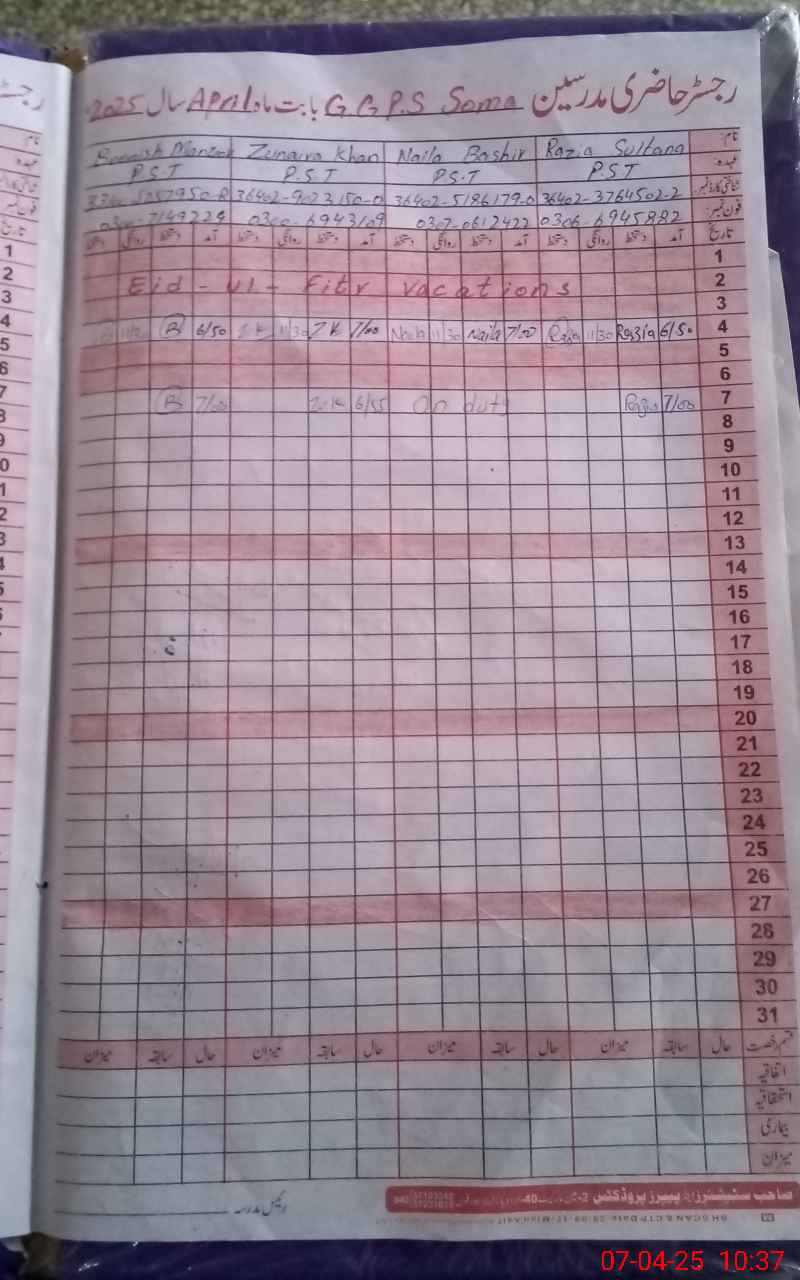 رجسٹر حاضری مدرسین G.G.P.S Soma بابت ماہ April سال 2025
نام: Razia Sultana Naila Bashir Zunaira Khan
عہدہ P.S.T P.S.T P.S.T P.S.T
شناختی کارڈ نمبر: 36402-3764502-2 36402-5186179-0 36402-9023150-0
فون نمبر: 0306-6945882 0307-0612422 0300-6943109 0300-7149229
تاریخ آمد دستخط روانگی دستخط آمد دستخط روانگی دستخط آمد دستخط روانگی دستخط آمد دستخط روانگی دستخط
1
2 Eid-ul-Fitr vacations
3
4 6/50 Razia 11/30 Razia 7/00 Naila 11/30 Naila 7/00 ZK 11/30 ZK 6/50 B 11/30
5
6
7 7/00 Razia On duty 6/55 7/00 B
8
9
10
11
12
13
14
15
16
17
18
19
20
21
22
23
24
25
26
27
28
29
30
31
قسم رخصت حال سابقہ میزان حال سابقہ میزان حال سابقہ میزان حال سابقہ میزان
اتفاقیہ
استحقاقیہ
بیماری
میزان
رئیس مدرسہ
صاحب سٹیشنرز اینڈ پیپرز پروڈکٹس
07-04-25 10:37